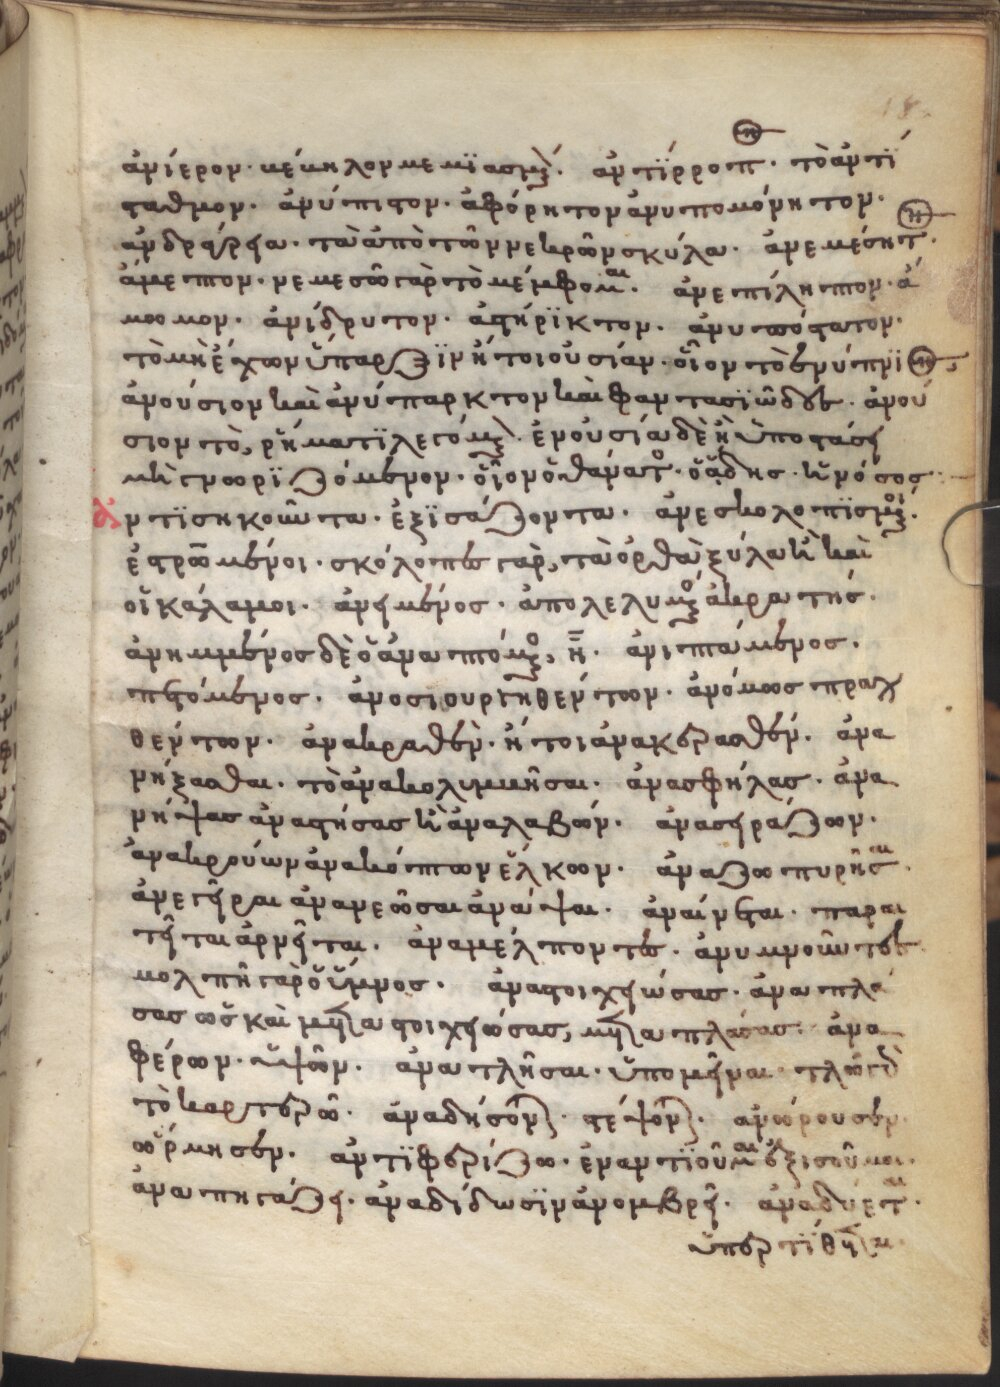 ἀνίερον· κέκηλον μεμϊασμ. ἀντίρροπ· τὸ ἀντί
σταθμον· ἀνύπιστον· ἀφόρητον ἀνυπομόνητον·
ἀνδράγρια· τὰ ἀπὸ τῶν νεκρῶν σκύλα· ἀνεμέσητ·
ἄμεμπτον· νεμεσῶ γὰρ τὸ μέμφομαι· ἀνεπίληπτον· ἄ
μωμον· ἀνίδρυτον· ἀστήρϊκτον· ἀνυπόστατον·
τὸ μὴ ἔχων ὕπαρξϊν ἤτοι οὐσίαν· οἷον τὸ ἐνύπνϊ
ἀνούσιον καὶ ἀνύπαρκτον καὶ φαντασϊῶδες· ἀνού
σιον τὸ, ῥήματϊ λεγόμ. ἐνούσια δὲ ἡ ὑποστάσει
καὶ γνωρϊζόμενον· οἷον ὁ θάνατος· ὁ ἅδης· καὶ νόσος
ἀντϊσηκοῦντα· ἐξϊσάζοντα· ἀνεσκολοπϊσμοι.
ἐστρωμένοι· σκόλοπες γὰρ, τὰ ὀρθὰ ξύλα καὶ
οἱ κάλαμοι· ἀνειμένος· ἀπολελυμο ἀκρατής·
ἀνημμένος δὲ ὁ ἀναπτόμο, η. ἀνιπτάμενος·
πετόμενος· ἀνοσιουργηθέντων· ἀνόμως πραχ
θέντων· ἀνακραθέν· ἤτοι ἀνακερασθέν· ἀνα
νήξασθαι· τὸ ἀνακολυμβῆσαι· ἀνασφήλας· ἀνα
νήψας ἀναστήσας καὶ ἀναλαβών· ἀνασειράζων·
ἀνακρούων ἀνακόπτων ἕλκων· ἀναζωπυρῆσαι·
ἀνεγεῖραι ἀνανεῶσαι ἀνάψαι· ἀναίνεται· παραι
τεῖται ἀρνεῖται· ἀναμέλποντες· ἀνυμνοῦντες
μολπὴ γὰρ ὁ ὕμνος· ἀναστοιχειώσας· ἀναπλά
σας ὡς καὶ μεταστοιχειώσας, μεταπλάσας· ἀνα
φέρων· ὑψῶν· ἀνατλῆσαι· ὑπομεῖναι· τλῶ γὰρ
τὸ καρτερῶ· ἀναδήσον· στέψον· ἀνώρουσεν·
ὥρμησεν· ἀντϊφερίζω· ἐναντϊοῦμαι ἐξισοῦμαι·
ἀναπηγάζει· ἀναδίδωσϊν ἀνομβρεῖ· ἀναδύεται·
ὑπερτίθεται·